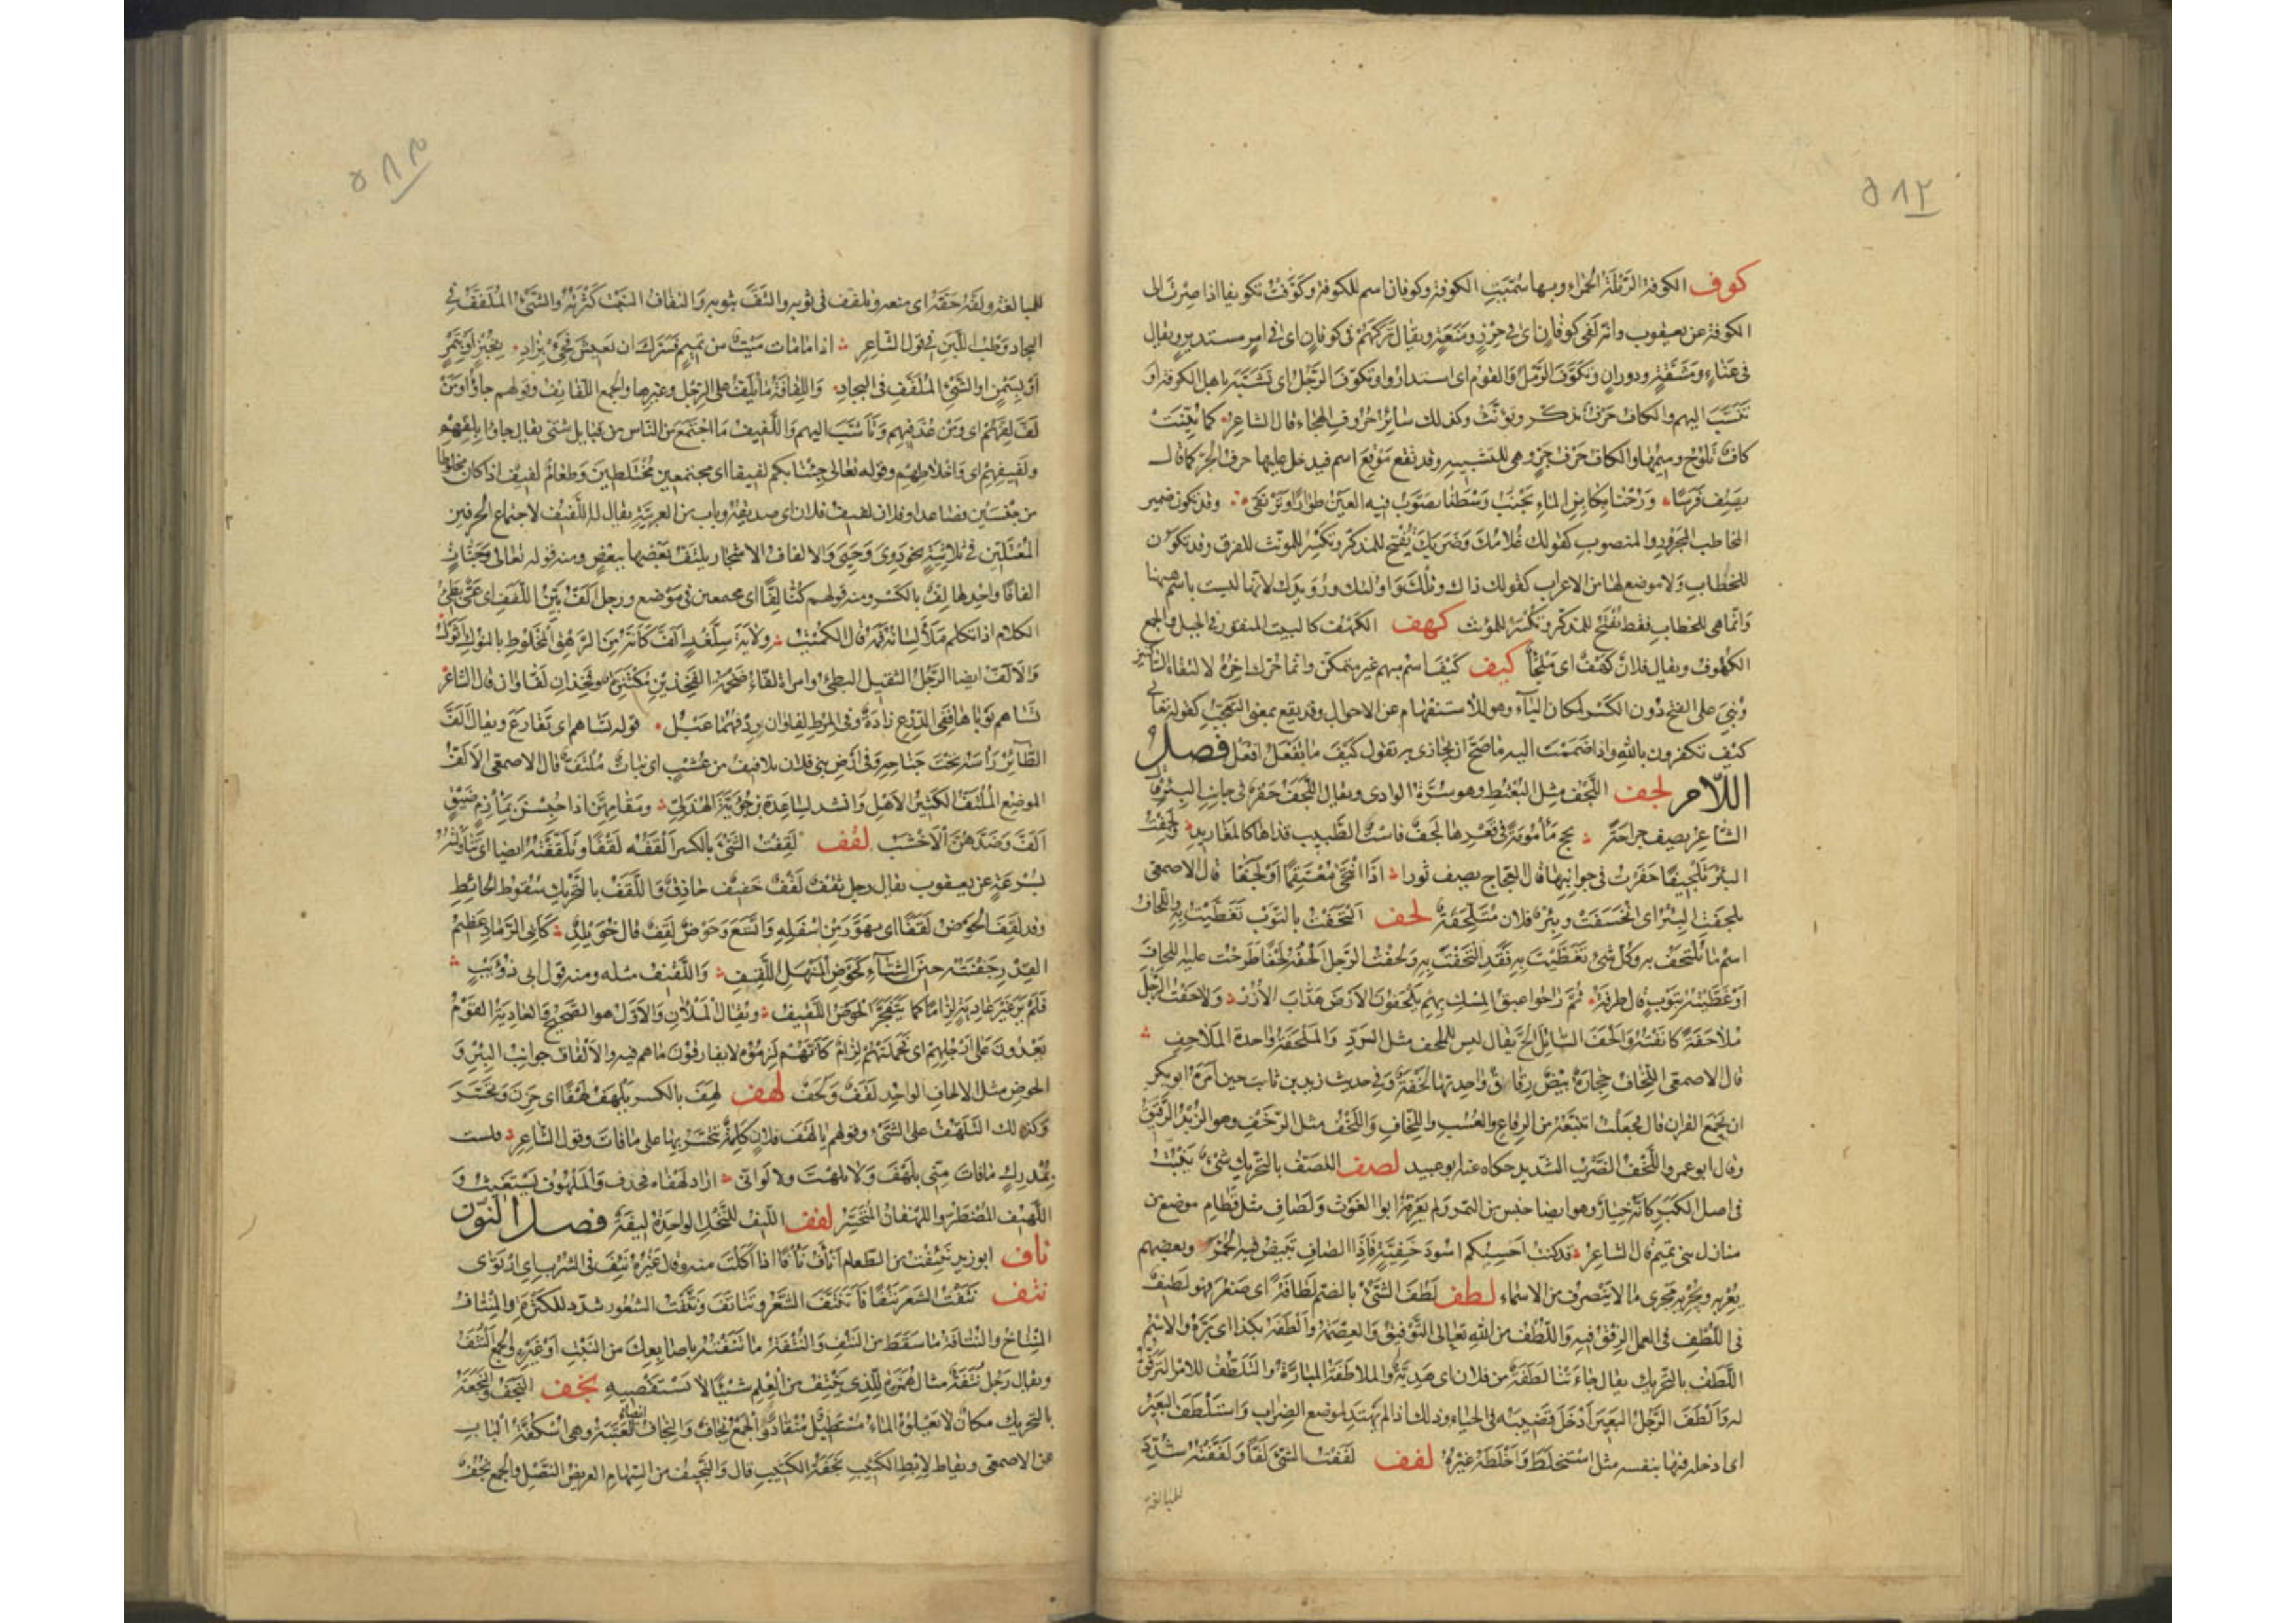 ٥١٢
كوف الكوفة الرملة الحمراء وبها سميت الكوفة وكوفان اسم للكوفة وكوفت تكويفا اذا صرت الى
الكوفة عن يعقوب وانه لفى كوفان اى فى حرز ومنعة ويقال تركتهم فى كوفان اى فى امر مستدير ويقال
فى عناء ومشقة ودوران وتكوف الرمل والقوم اى استداروا وتكوف الرجل اى تشبه باهل الكوفة او
تنسب اليهم والكاف حرف يذكر ويؤنث وكذلك سائر حروف الهجاء قال الشاعر كما بينت
كاف تلوح وميمها والكاف حرف جر وهى للتشبيه وقد تقع موقع اسم فيدخل عليها حرف الجر كما قال
يصف فرسا ورحنا بكابن الماء يجنب وسطنا تصوب فيه العين طورا وترتقى وقد تكون ضمير
المخاطب المجرور والمنصوب كقولك غلامك وضربك تفتح للمذكر وتكسر للمونث للفرق وقد تكون
للخطاب ولا موضع لها من الاعراب كقولك ذاك وتلك واولئك ورويدك لانها ليست باسم ههنا
وانما هى للخطاب فقط تفتح للمذكر وتكسر للمونث كهف الكهف كالبيت المنقور فى الجبل والجمع
الكهوف ويقال فلان كهف اى ملجأ كيف كيف اسم مبهم غير متمكن وانما حرك اخره لالتقاء الساكنين
وبنى على الفتح دون الكسر لمكان الياء وهو للاستفهام عن الاحوال وقد يقع بمعنى التعجب كقوله تعالى
كيف تكفرون بالله واذا ضممت اليه ما صح ان يجازى به تقول كيف ما تفعل افعل فصل
اللام لجف اللجف مثل البعثط وهو سرة الوادى ويقال اللجف حفر فى جانب البئر قال
الشاعر يصف جراحة يحج مأمومة فى قعرها لجف فاست الطبيب قذاها كالمغاريد ولجفت
البئر تلجيفا حفرت فى جوانبها قال العجاج يصف ثورا اذا انتحى معتقما او لجفا قال الاصمعى
تلجفت البئر اى انخسفت وبئر فلان متلجفة لحف التحفت بالثوب تغطيت به واللحاف
اسم ما يلتحف به وكل شئ تغطيت به فقد التحفت به ولحفت الرجل الحفه لحفا طرحت عليه اللحاف
او غطيته بثوب قال طرفة ثم راحوا عبق المسك بهم يلحفون الارض هداب الازر ولاحفت الرجل
ملاحفة كانفته والحف السائل الح يقال ليس للملحف مثل الرد والملحفة واحدة الملاحف
قال الاصمعى اللخاف حجارة بيض رقاق واحدتها لخفة وفى حديث زيد بن ثابت حين امره ابو بكر
ان يجمع القران قال فجعلت اتتبعه من الرقاع والعسب واللخاف واللخف مثل الرخف وهو الزبد الرقيق
وقال ابو عمرو اللخف الضرب الشديد حكاه عنه ابو عبيد لصف اللصف بالتحريك شئ ينبت
فى اصل الكبر كانه خيار وهو ايضا جنس من التمر ولم يعرفه ابو الغوث ولصاف مثل قطام موضع من
منازل بنى تميم قال الشاعر قد كنت احسبكم اسود خفية فاذا لصاف تبيض فيه الحمر وبعضهم
يعربه ويجريه مجرى ما لا ينصرف من الاسماء لطف لطف الشئ بالضم لطافة اى صغر فهو لطيف
فى اللطف فى العمل الرفق فيه واللطف من الله تعالى التوفيق والعصمة والطفه بكذا اى بره والاسم
اللطف بالتحريك يقال جاءتنا لطفة من فلان اى هدية والملاطفة المبارة والتلطف للامر الترفق
له والطف الرجل البعير ادخل قضيبه فى الحياء وذلك اذا لم يهتد لموضع الضراب واستلطف البعير
اى ادخله فيها بنفسه مثل استخلط واخلطه غيره لفف لففت الشئ لفا ولففته شدد
للمبالغة
٥١٣
للمبالغة ولفه حقه اى منعه وتلفف فى ثوبه والتف بثوبه والتفاف النبت كثرته والشئ الملفف فى
البجاد وطب اللبن فى قول الشاعر اذا ما مات ميت من تميم فسرك ان يعيش فجئ بزاد بخبز او بتمر
او بسمن او الشئ الملفف فى البجاد واللفافة ما يلف على الرجل وغيرها والجمع اللفائف وقولهم جاؤا ومن
لف لفهم اى ومن عد فيهم وتأشب اليهم واللفيف ما اجتمع من الناس من قبايل شتى يقال جاؤا بلفهم
ولفيفهم اى واخلاطهم وقوله تعالى جئنا بكم لفيفا اى مجتمعين مختلطين وطعام لفيف اذا كان مخلوطا
من جنسين فصاعدا وفلان لفيف فلان اى صديقه وباب من العربية يقال له اللفيف لاجتماع الحرفين
المعتلين فى ثلاثيه نحو دوى وحيى والالفاف الاشجار يلتف بعضها ببعض ومنه قوله تعالى وجنات
الفافا واحدها لف بالكسر ومنه قولهم كنا لفا اى مجتمعين فى موضع ورجل الف بين اللفف اى عى بطئ
الكلام اذا تكلم ملأ لسانه فمه قال الكميت ولاية سلغد الف كانه من الرهق المخلوط بالنوك اثول
والالف ايضا الرجل الثقيل البطئ وامراة لفاء ضخمة الفخذين مكتنزة وفخذان لفاوان قال الشاعر
تساهم ثوباها ففى الدرع رادة وفى المرط لفاوان ردفهما عبل قوله تساهم اى تقارع ويقال الف
الطائر رأسه تحت جناحه وفى ارض بنى فلان تلافيف من عشب اى نبات ملتف قال الاصمعى الالف
الموضع الملتف الكثير الاهل وانشد لساعدة بن جؤية الهذلى ومقامهن اذا حبسن بمأزم ضيق
الف وصدهن الاخشب لقف لقفت الشئ بالكسر القفه لقفا وتلقفته ايضا اى تناولته
بسرعة عن يعقوب يقال رجل ثقف لقف خفيف حاذق واللقف بالتحريك سقوط الحائط
وقد لقف الحوض لقفا اى تهور من اسفله واتسع وحوض لقف قال خويلد كابى الرماد عظيم
القدر جفنته حين الشتاء كحوض المنهل اللقف واللقيف مثله ومنه قول ابى ذؤيب
فلم تر غير عادية لزاما كما يتفجر الحوض اللقيف ويقال الملآن والاول هو الصحيح والعادية القوم
يعدون على ارجلهم اى فحملتهم لزام كانهم لزموه لا يفارقون ما هم فيه والالقاف جوانب البئر و
الحوض مثل الالجاف الواحد لقف ولجف لهف لهف بالكسر يلهف لهفا اى حزن وتحسر
وكذلك التلهف على الشئ وقولهم يا لهف فلان كلمة يتحسر بها على ما فات وقول الشاعر فلست
بمدرك ما فات منى بلهف ولا بليت ولا لوانى اراد لهفاه فحذف والملهوف يستغيث و
اللهيف المضطر واللهفان المتحسر لفف الليف للنخل الواحدة ليفة فصل النون
ناف ابو زيد نئفت من الطعام انأف نأفا اذا اكلت منه وقال غيره نئف فى الشرب اى ارتوى
نتف نتفت الشعر نتفا فانتتف الشعر وتناتف ونتفت الشعور شدد للكثرة والمنتاف
المنتاخ والنتافة ما سقط من النتف والنتفة ما نتفته باصابعك من النبت او غيره والجمع النتف
ويقال رجل نتفة مثال همزة للذى ينتف من العلم شيئا لا يستقصيه نجف النجف والنجفة
بالتحريك مكان لا يعلوه الماء مستطيل منقاد والجمع نجاف والنجاف ايضا العتبة وهى اسكفة الباب
عن الاصمعى ويقال لابط الكثيب نجفة الكثيب قال والنجيف من السهام العريض النصل والجمع نجف